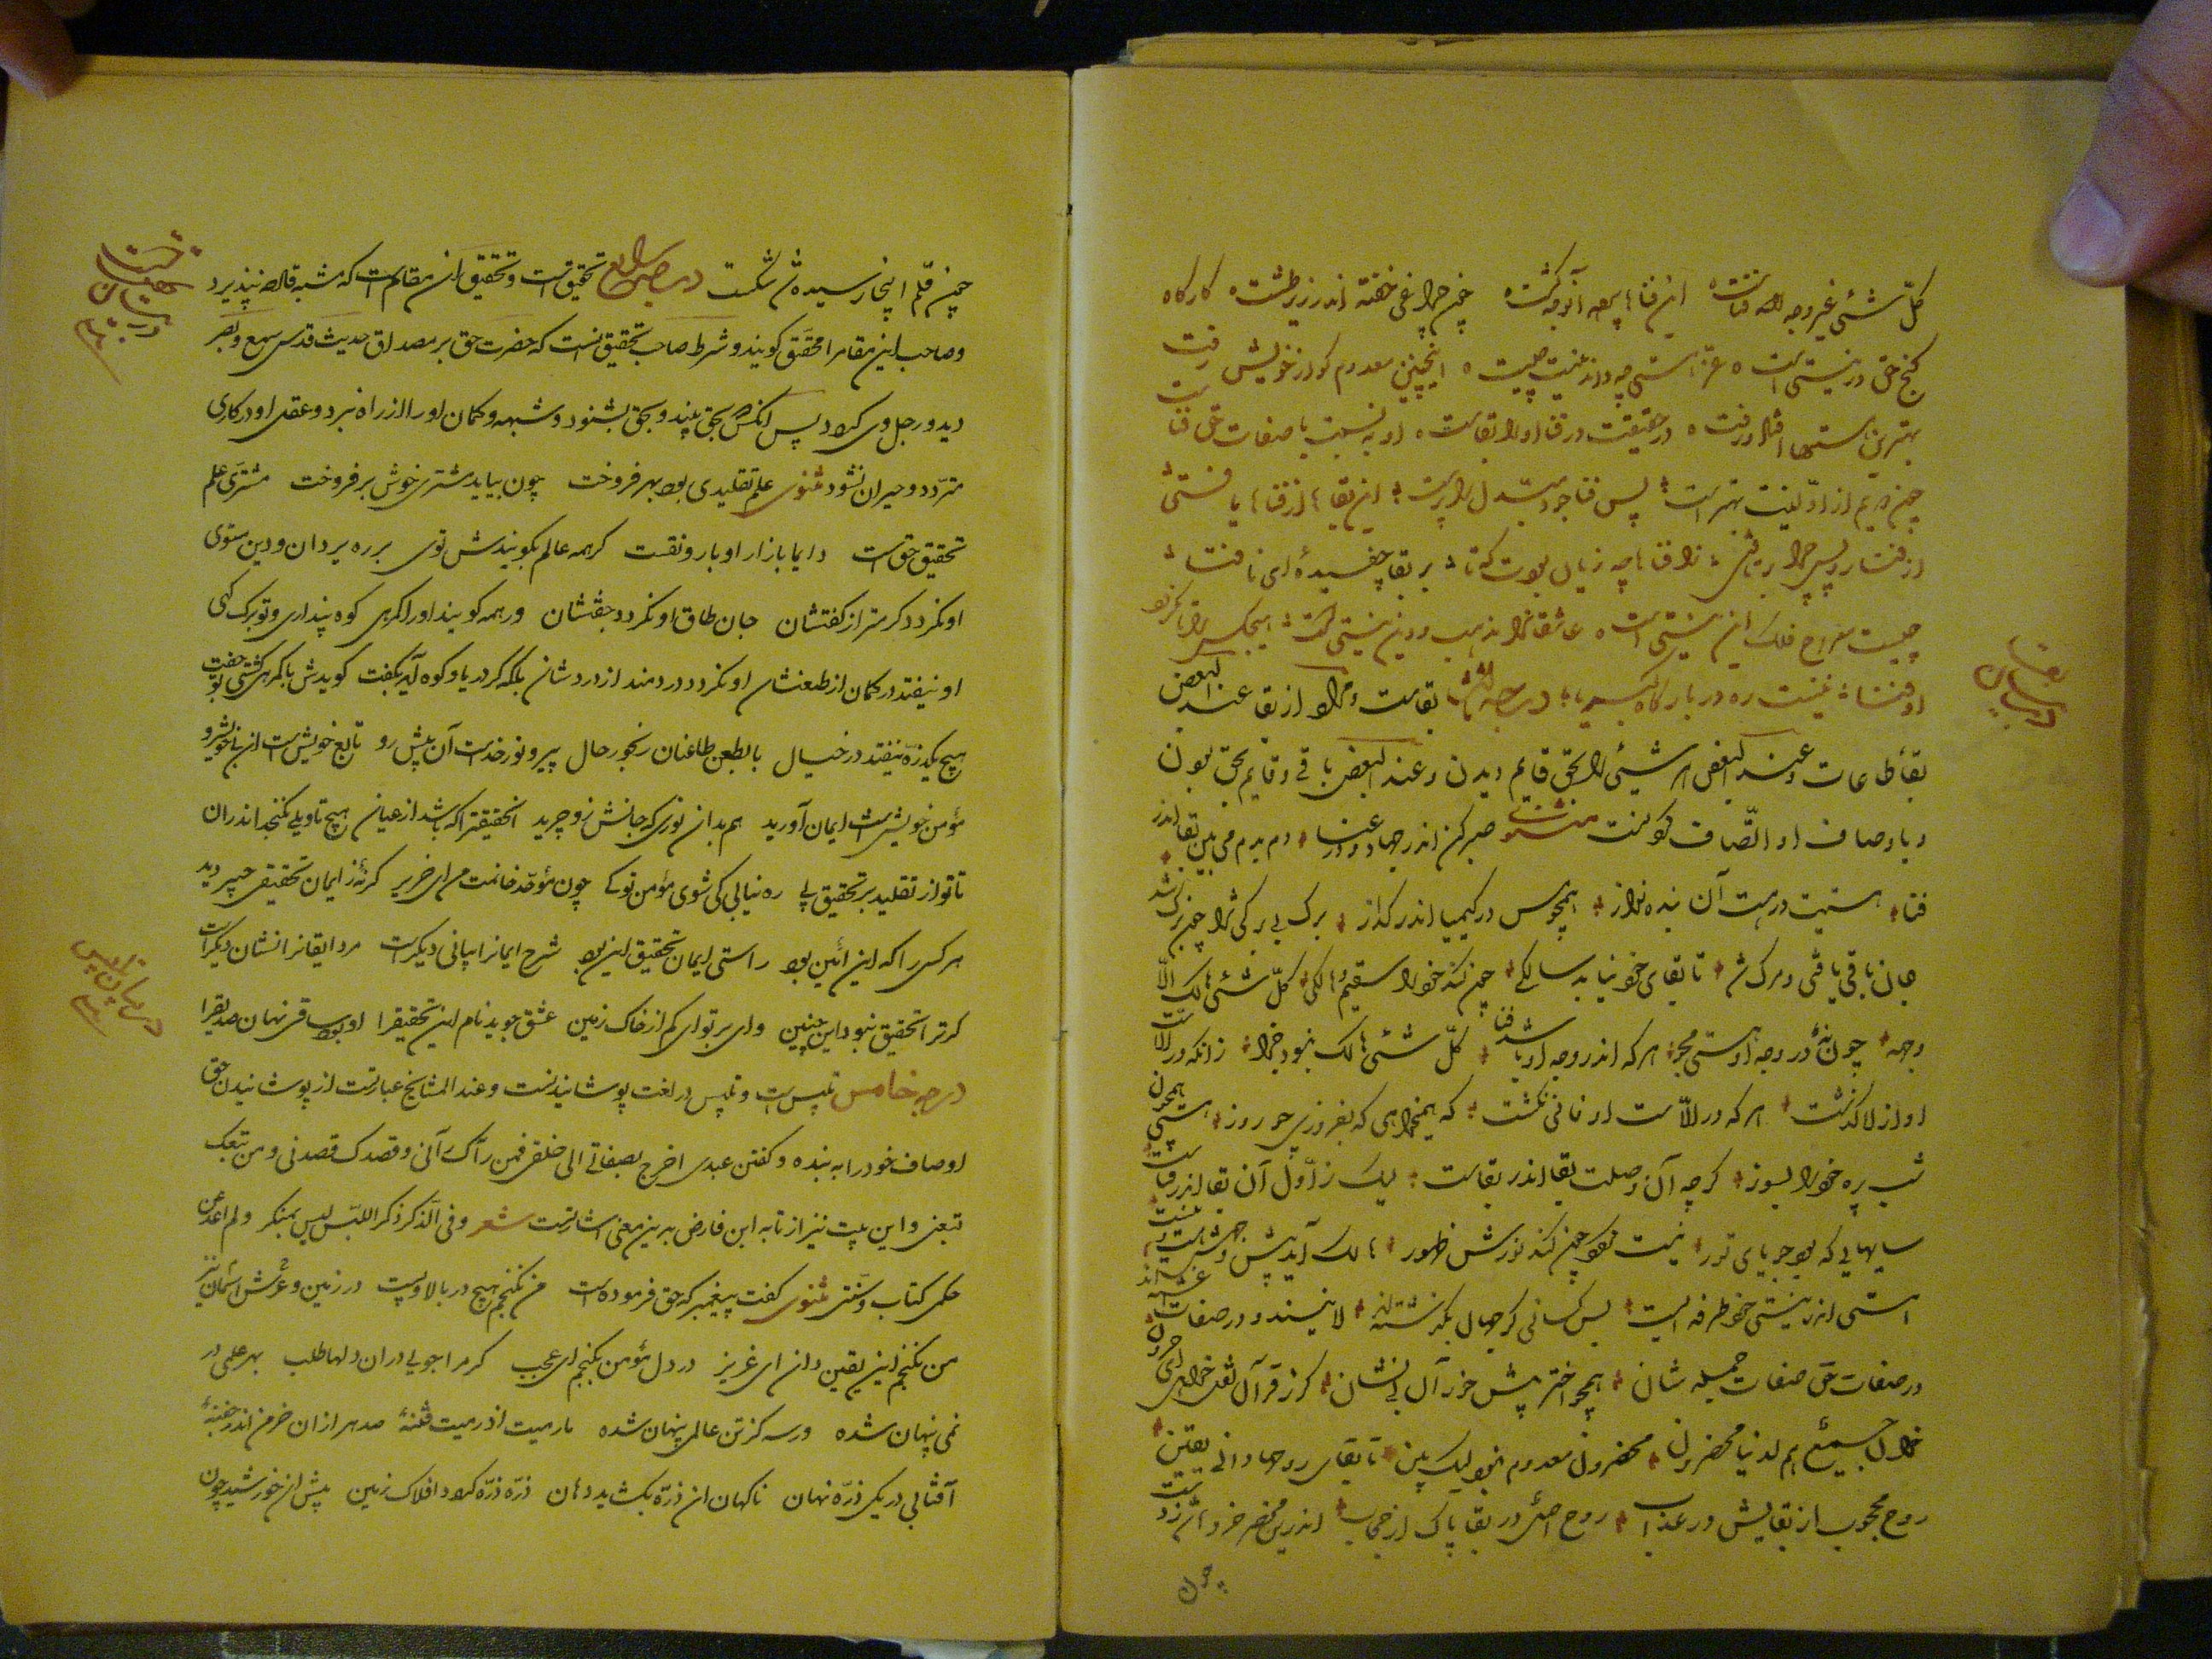 كلّ شئ غير وجه الله فناست این فناها پرده آن وجه گشت چون چراغی خفته اندر زیر طشت کارگاه
گنج حق در نیستی است غرّهٔ هستی چه دانی نیست چیست اینچنین معدوم کو از خویش رفت
بهترین هستها افتاد و رفت در حقیقت در فنا او را بقاست او به نسبت با صفات حق فناست
چون دویم از اوّلینت بهترست پس فنا جو و مبدل را پرست این بقاها از فناها یافتی
از فنااش رو چرا برتافتی زان فناها چه زیان بودت که تا بر بقا چفسیدهٔ ای نافتا
چیست معراج فلک این نیستی عاشقانرا مذهب و دین نیستی است هیچکس را تا نگردد
او فنا نیست ره در بارگاه کبریا درجه ثالث بقاست و مراد از بقا عند البعض
بقأ طاعات و عند البعض هر شیئی را بحق قایم دیدن و عند البعض باقی و قایم بحق بودن
و باوصاف او اتّصاف کردنست مثنوی صبر کن اندر جهاد و در عنا دم بدم می بین بقا اندر
فنا هستیت در هست آن بنده نواز همچو مس در کیمیا اندر گداز برگ بی برگی ترا چون برگ شد
جان باقی یافتی و مرگ شد تا بقای خود نیابد سالکی چون کند خود را سقیم و هالکی كلّ شئ هالك الّا
وجهه چون نهٔ در وجه او هستی مجو هر که اندر وجه او باشد فنا كلّ شئ هالك نبود جزا زانکه در الّاست
او از لا گذشت هر که در الّاست او فانی نگشت گر همیخواهی که بفروزی چو روز هستی همچون
شب پره خود را بسوز گرچه آن وصلت بقا اندر بقاست لیک ز اوّل آن بقا اندر فناست
سایهایی که بود جویای نور نیست گردد چون کند نورش ظهور هالک آید پیش وجهش هست و نیست
هستی اندر نیستی خود طرفه ایست پس کسانی کز جهان بگذشته اند لا نیند و در صفات آغشته اند
در صفات حق صفات جمله شان همچو اختر پیش خور آن بی نشان گر ز قرآن نقل خواهی ای حرون
خوان جمیع هم لدینا محضرون محضرون معدوم نبود نیک بین تا بقای روحها دانی یقین
روح محجوب از بقایش در عذاب روح واصل در بقا پاک از حجاب
چون
در بیان بقا
چون قلم اینجا رسیده شد شکست درجه رابع تحقیق است و تحقیق این مقام است که مشبه قال نپذیرد
و صاحب این مقام را محقق گویند و شرط صاحب تحقیق آنست که حضرت حق بر مصداق حدیث قدسی سمع و بصر
و ید و رجل وی گردد پس آنکس بحق بیند و بحق بشنود و شبهه و گمان او را از راه نبرد و عقل او در کاری
متردد و حیران نشود مثنوی علم تقلیدی بود بهر فروخت چون بیابد مشتری خوش برفروخت مشتری علم
تحقیقی حق است دایما بازار او با رونقست گر همه عالم بگویندش توی بر ره یزدان و دین مستوی
او نگردد گرمتر از گفتشان جان طاق او نگردد جفتشان ور همه گویند او را گمرهی کوه پنداری و تو برگ کهی
او نیفتد در گمان از طعنشان او نگردد دردمند از دردشان بلکه گر دریا و کوه آید بگفت گویدش با گمرهی گشتی تو جفت
هیچ یکذرّه نیفتد در خیال یا بطعن طاعنان رنجور حال پیرو نور خدست آن پیش رو تابع خویشست آن بی خویش رو
مؤمن خویشست ایمان آورید هم بدان نوری که جانش زو چرید آنحقیقتراکه باشد از عیان هیچ تأویلی نگنجد اندران
تا تو از تقلید بر تحقیق پی ره نیابی کی شوی مؤمن تو کی
هر کسی را که این آئین بود راستی ایمان تحقیق این بود شرح ایمانرا بیانی دیگرست مرد ایقانرا نشان دیگرست
گر ترا تحقیق نبود این چنین وای بر تو ای کم از خاک زمین عشق جوید نام این تحقیقرا او بود ساقی نهان صدیقرا
درجه خامس تلبیس است و تلبیس در لغت پوشانیدنست و عند المشایخ عبارتست از پوشانیدن حق
اوصاف خود را به بنده و گفتن عبدی اخرج بصفاتی الی خلقی فمن رآك رآنی و قصدك قصدنی و من تبعك
تبعنی و این بیت نیز از تائیه ابن فارض بدین معنی اشارتست شعر و فی الذکر ذکر اللبس لیس بمنکر ولم اعد عن
حکمی کتاب و سنّتی مثنوی گفت پیغمبر که حق فرموده است من نگنجم هیچ در بالا و پست در زمین و عرش آسمان نیز
من نگنجم این یقین دان ای عزیز در دل مؤمن بگنجم ای عجب گر مرا جویی در آن دلها طلب بحر علمی در
نمی پنهان شده در سه گز تن عالمی پنهان شده مارمیت اذ رمیت فتنهٔ صد هزاران خرمن اندر حفنهٔ
آفتابی در یکی ذرّه نهان ناگهان آن ذرّه بگشاید دهان ذرّه ذرّه گردد افلاک و زمین پیش آن خورشید چون
در بیان تحقیق
در بیان تلبیس